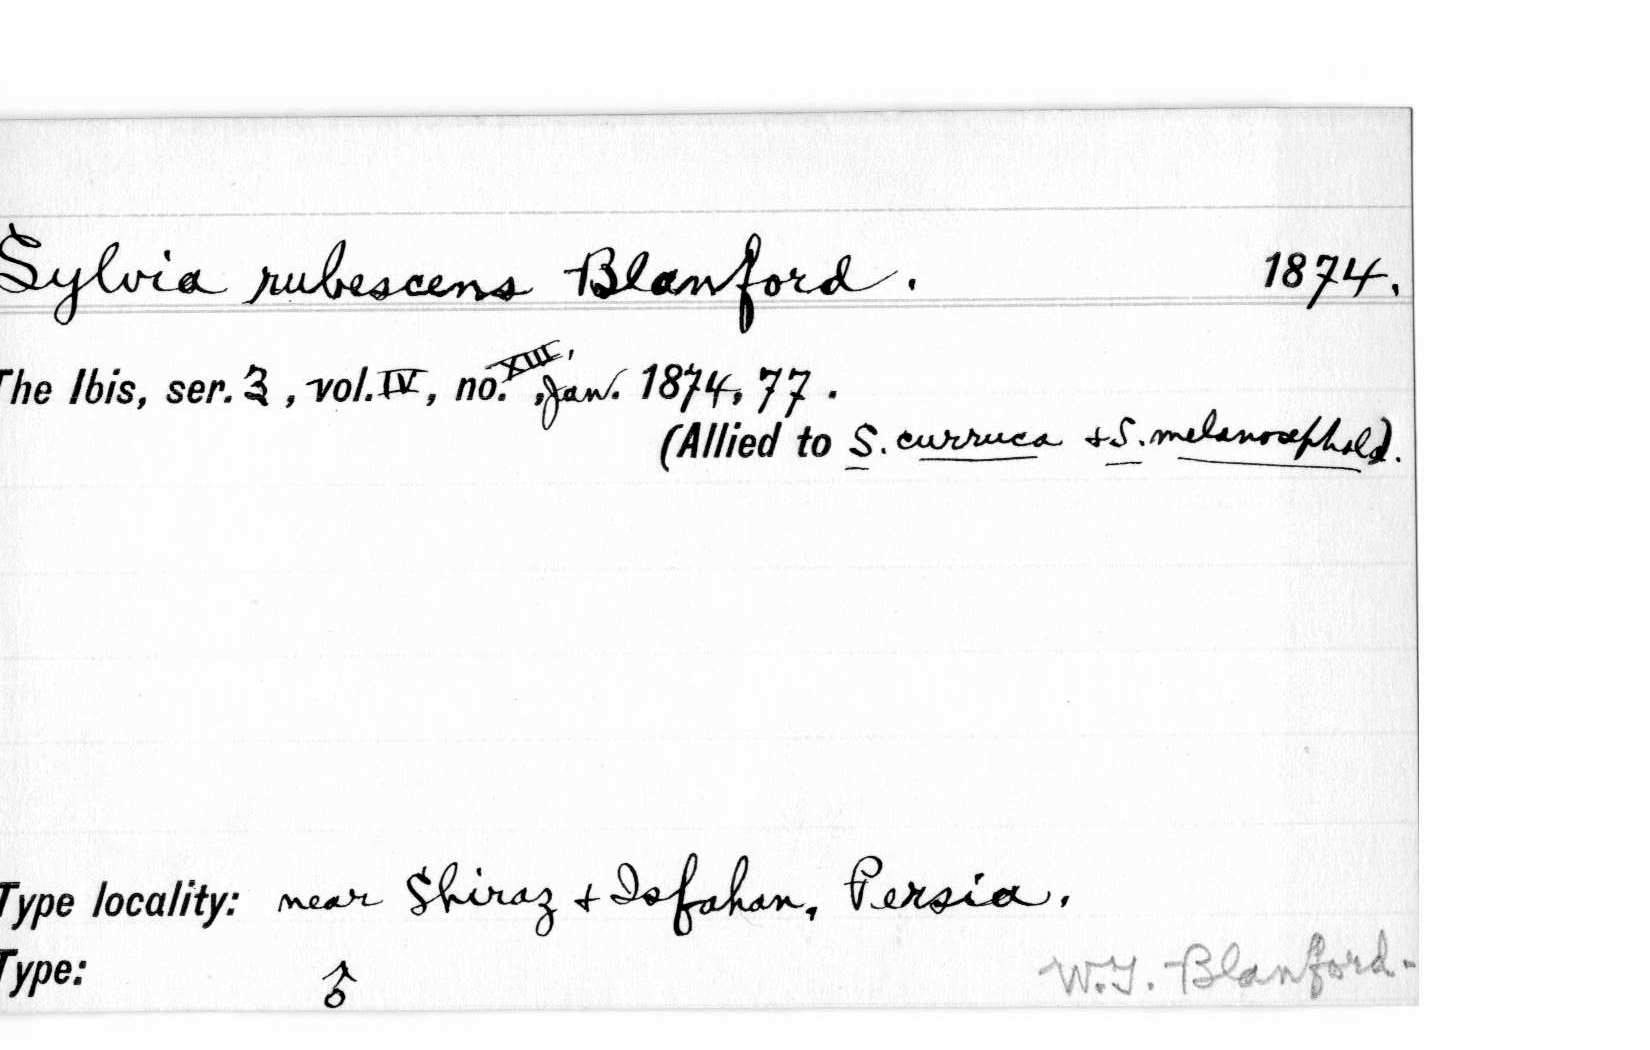 Sylvia rubescens Blanford. 1874.
The Ibis, ser. 3, vol. IV, no. XIII, Jan. 1874, 77.
(Allied to S. curruca + S. melanocephala).
Type locality: near Shiraz + Isfahan, Persia.
Type: ♂ W.T. Blanford.